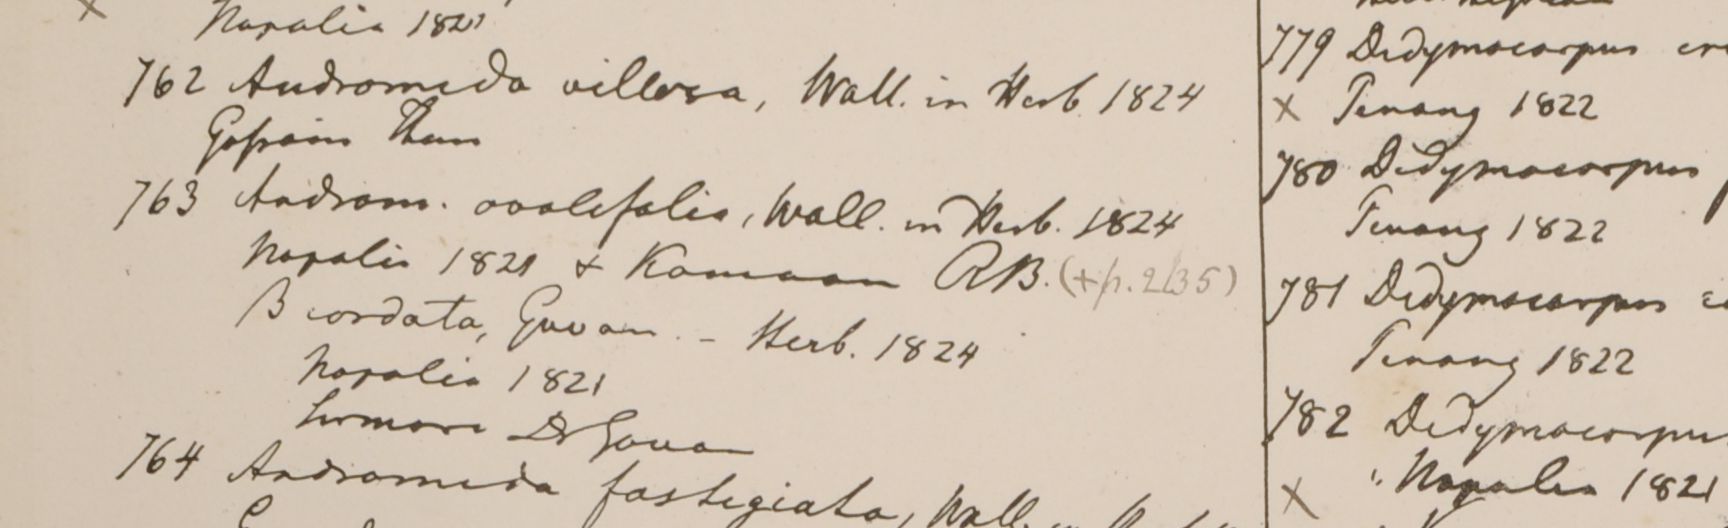 × Napalia 1821
762 Andromeda villosa, Wall. in Herb. 1824
Gossain Than
763 Androm. ovalifolia, Wall. in Herb. 1824
Napalia 1821 & Kamaon RB. (+p. 2/35)
β cordata, Govan. - Herb. 1824
Napalia 1821
Sirmore Dr Govan
764 Andromeda fastigiata, Wall. in
779 Didymocarpus
× Penang 1822
780 Didymocarpus
Penang 1822
781 Didymocarpus
Penang 1822
782 Didymocarpus
× Napalia 1821